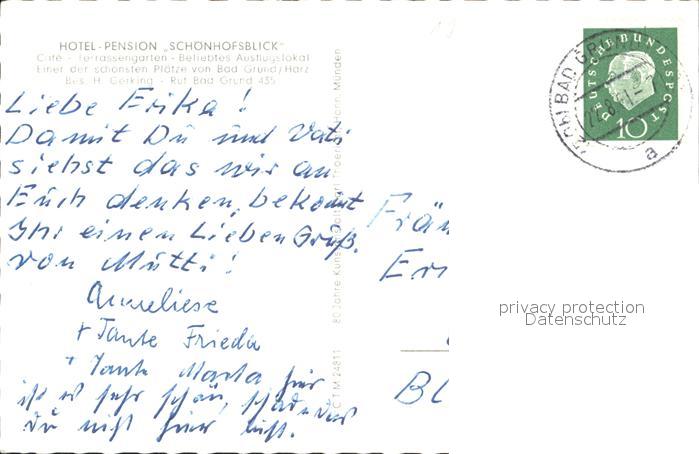 HOTEL-PENSION „SCHÖNHOFSBLICK"
Café - Terrassengarten - Beliebtes Ausflugslokal
Einer der schönsten Plätze von Bad Grund/Harz
Bes. H. Gerking - Ruf Bad Grund 435
Liebe Erika!
Damit Du und Vati
siehst das wir an
Euch denken, bekommt
Ihr einen Lieben Gruß.
von Mutti!
Anneliese
+ Tante Frieda
+ Tante Marta hier
ist es sehr schön, schade das
du nicht hier bist.
80 Jahre Kunst
Hann. Münden
C T M 24811
DEUTSCHE BUNDESPOST
10
BAD GRUND
a
Frän
Er
BL
privacy protection
Datenschutz